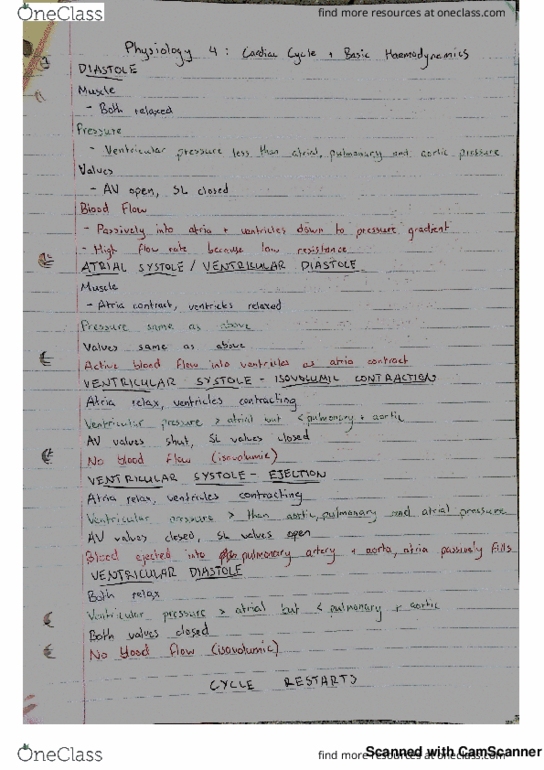 OneClass
find more resources at oneclass.com
Physiology 4 : Cardiac Cycle + Basic Haemodynamics
DIASTOLE
Muscle
- Both relaxed
Pressure
- Ventricular pressure less than atrial, pulmonary and aortic pressure
Valves
- AV open, SL closed
Blood Flow
- Passively into atria + ventricles down to pressure gradient
- High flow rate because low resistance
ATRIAL SYSTOLE / VENTRICULAR DIASTOLE
Muscle
- Atria contract, ventricles relaxed
Pressure same as above
Valves same as above
Active blood flow into ventricles as atria contract
VENTRICULAR SYSTOLE - ISOVOLUMIC CONTRACTION
Atria relax, ventricles contracting
Ventricular pressure > atrial but < pulmonary + aortic
AV valves shut, SL valves closed
No blood flow (isovolumic)
VENTRICULAR SYSTOLE - EJECTION
Atria relax, ventricles contracting
Ventricular pressure > than aortic, pulmonary and atrial pressure
AV valves closed, SL valves open
Blood ejected into pulmonary artery + aorta, atria passively fills
VENTRICULAR DIASTOLE
Both relax
Ventricular pressure > atrial but < pulmonary + aortic
Both valves closed
No blood flow (isovolumic)
CYCLE RESTARTS
OneClass
find more resources at oneclass.com
Scanned with CamScanner